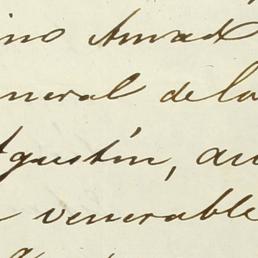 ino Amat
eneral de la
Agustín, au
venerable